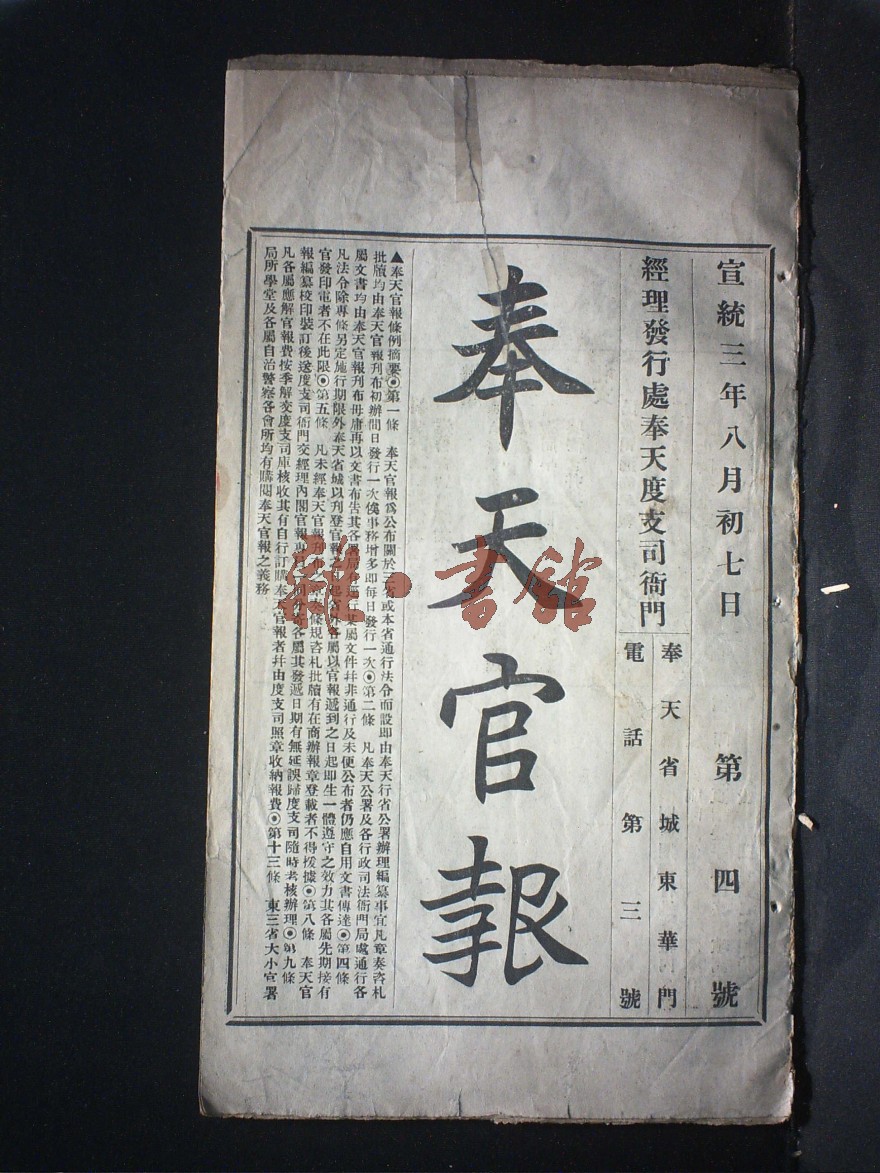 宣統三年八月初七日 第四號
經理發行處奉天度支司衙門
奉天省城東華門
電話第三號
奉天官報
▲奉天官報條例摘要◉第一條 奉天官報爲公布關於三省或本省通行法令而設即由奉天行省公署辦理編纂事宜凡章奏咨札
批牘均由奉天官報刊布初辦間日發行一次俟事務增多即每日發行一次◉第二條 凡奉天公署及各行政司法衙門局處通行各
屬文書均由奉天官報刊布毋庸再以文書布告其各署局專行某屬文件幷非通行及未便公布者仍應自用文書傳達◉第四條
凡法令除專條另定施行期限外奉天省城以刊登官報之日起各屬以官報遞到之日起即生一體遵守之效力其各屬先期接有
官發印電者不在此限◉第五條 凡未經奉天官報刊布章奏條規咨札批牘有在商辦報章登載者不得援據◉第八條 奉天官
報編纂校印裝訂後送度支司衙門交經理內閣官報專員一同分寄各屬其發遞日期有無延誤歸度支司隨時考核辦理◉第九條
凡各屬應解官報費按季解交度支司庫核收其有自行訂購奉天官報者幷由度支司照章收納報費◉第十三條 東三省大小官署
局所學堂及各屬自治警察各會所均有購閱奉天官報之義務
雜·書館